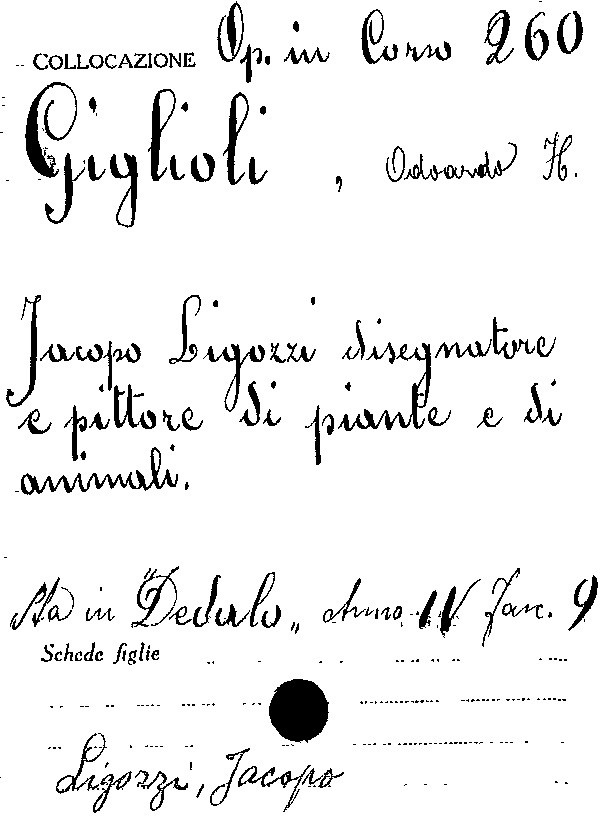 COLLOCAZIONE Op. in Corso 260
Giglioli, Odoardo H.
Jacopo Ligozzi disegnatore
e pittore di piante e di
animali.
Sta in "Dedalo„ Anno IV Fasc. 9
Schede figlie
Ligozzi, Jacopo